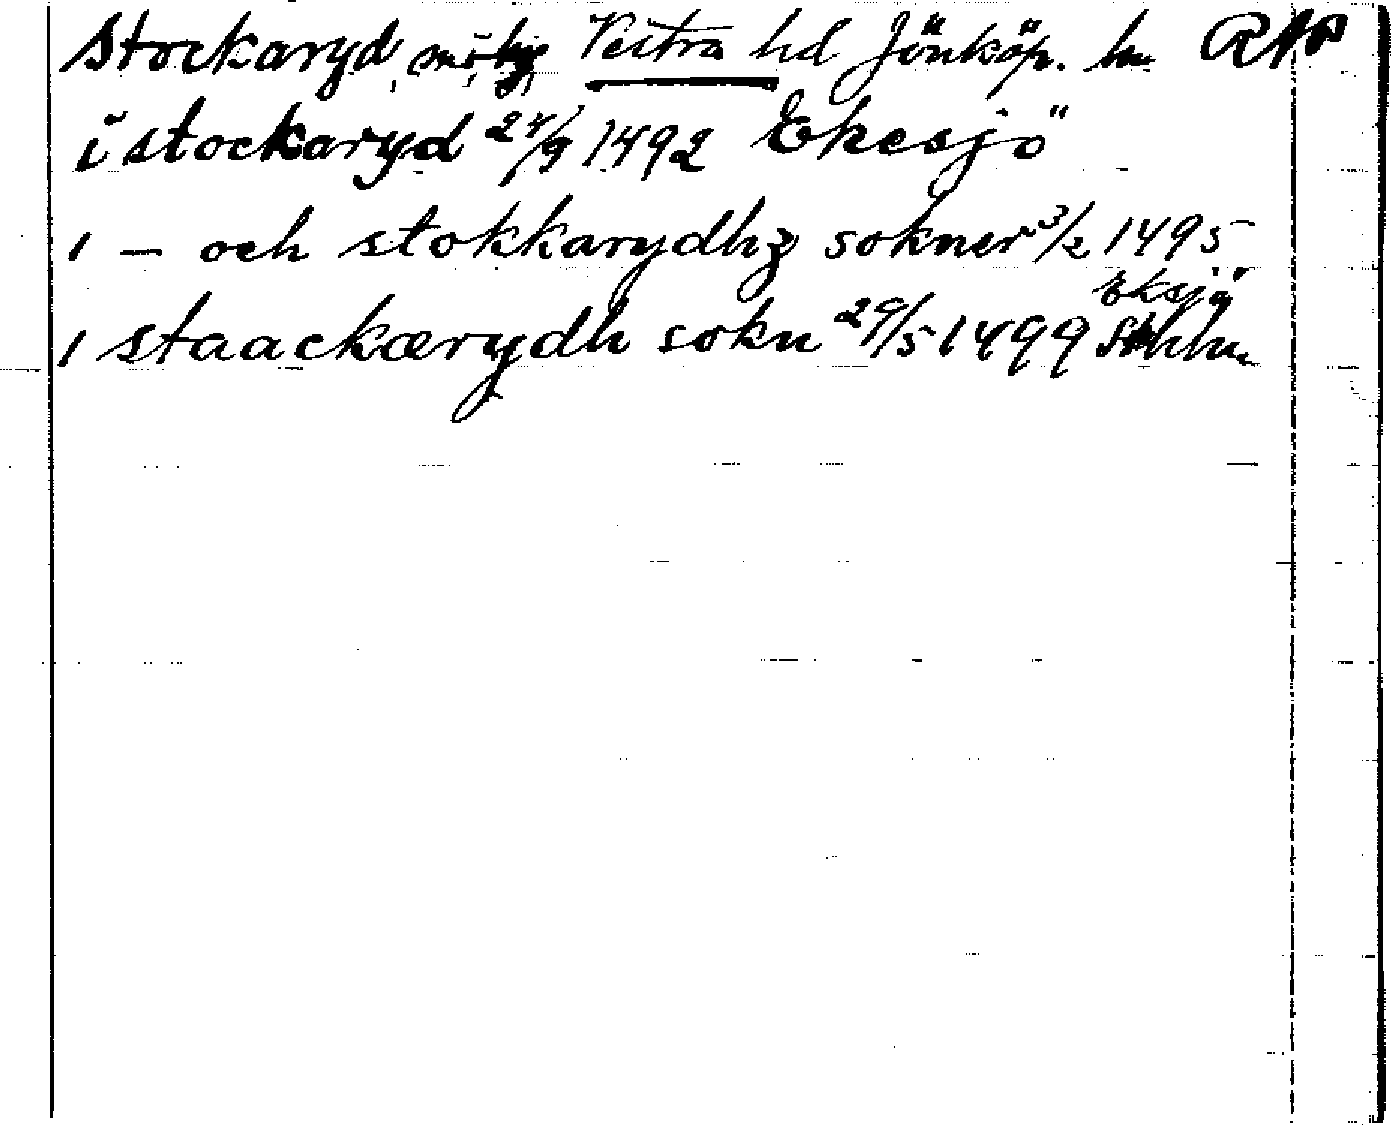 Stockaryd, Vestra hd Jönköp. ln RAP
i stockaryd 24/9 1492 Ekesjö
i – och stokkarydhz sokner 3/2 1495
Eksjö
i staackærydh sokn 29/5 1499 Sthlm